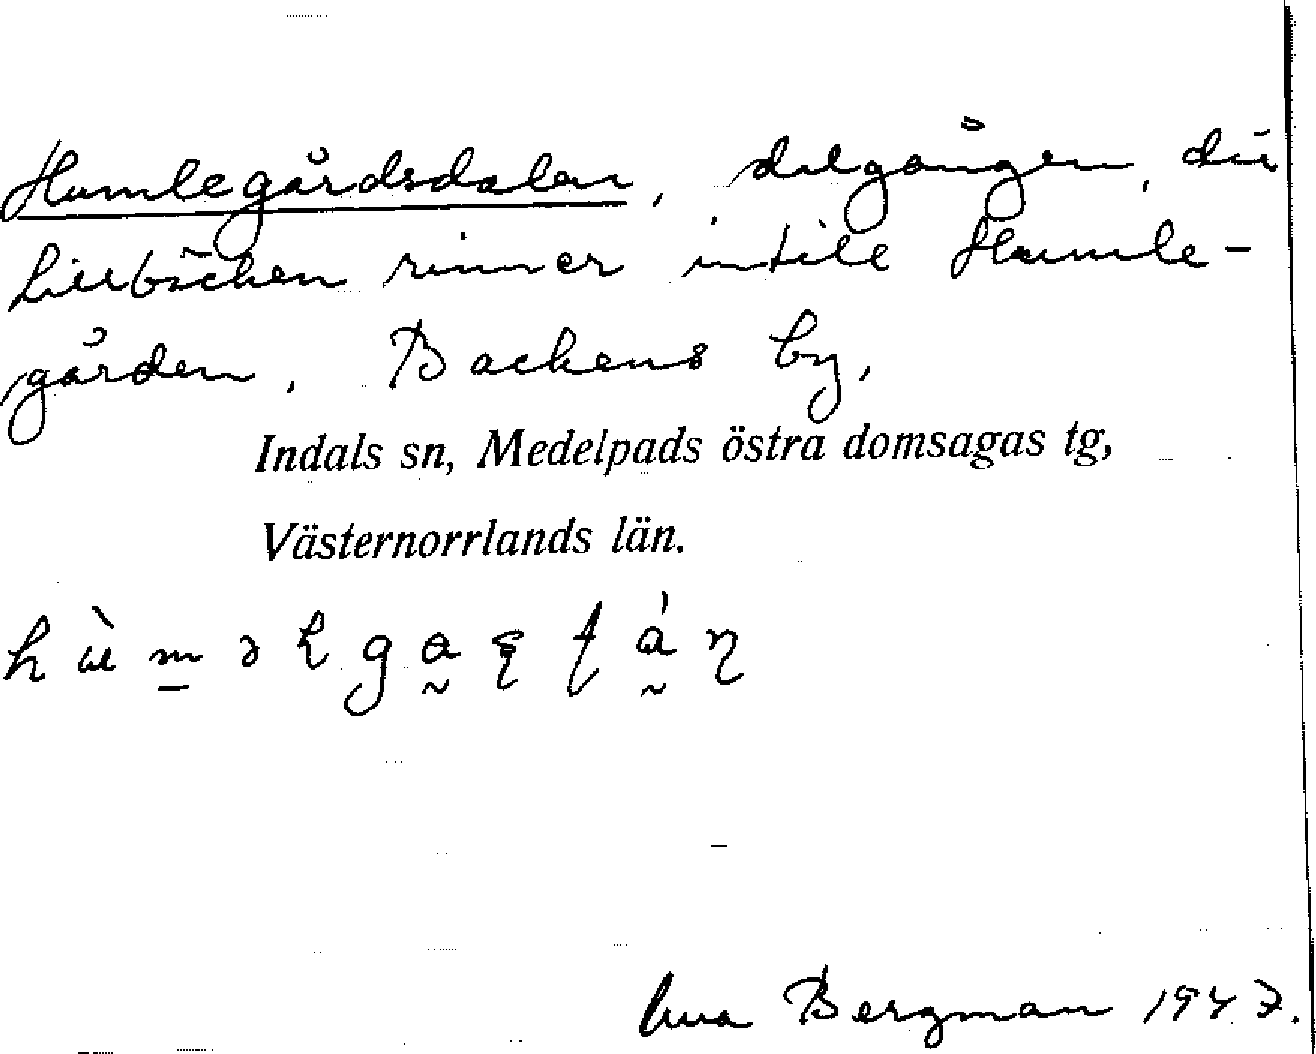 Humlegårdsdalen, dalgången, där
Lillbäcken rinner intill Humle-
gården, Backens by,
Indals sn, Medelpads östra domsagas tg,
Västernorrlands län.
Bergman 1947.